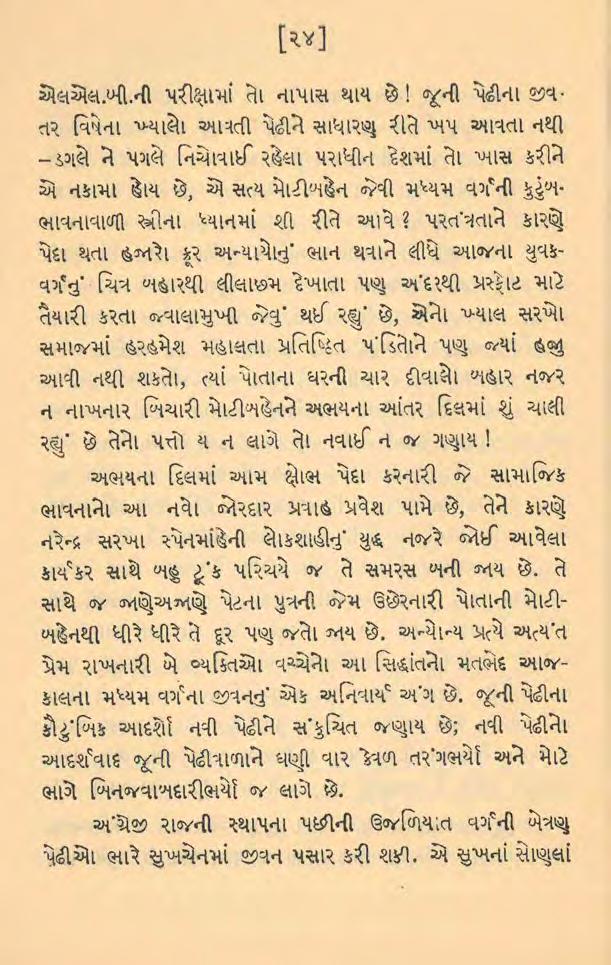 [૨૪]
એલએલ.બી.ની પરીક્ષામાં તો નાપાસ થાય છે! જૂની પેઢીના જીવ-
તર વિષેના ખ્યાલો આવતી પેઢીને સાધારણ રીતે ખપ આવતા નથી
–ડગલે ને પગલે નિચોવાઈ રહેલા પરાધીન દેશમાં તો ખાસ કરીને
એ નકામા હોય છે, એ સત્ય મોટીબહેન જેવી મધ્યમ વર્ગની કુટુંબ-
ભાવનાવાળી સ્ત્રીના ધ્યાનમાં શી રીતે આવે? પરતંત્રતાને કારણે
પેદા થતા હજારો ક્રૂર અન્યાયોનું ભાન થવાને લીધે આજના યુવક-
વર્ગનું ચિત્ર બહારથી લીલાછમ દેખાતા પણ અંદરથી પ્રસ્ફોટ માટે
તૈયારી કરતા જ્વાલામુખી જેવું થઈ રહ્યું છે, એનો ખ્યાલ સરખો
સમાજમાં હરહમેશ મહાલતા પ્રતિષ્ઠિત પંડિતોને પણ જ્યાં હજુ
આવી નથી શકતો, ત્યાં પોતાના ઘરની ચાર દીવાલો બહાર નજર
ન નાખનાર બિચારી મોટીબહેનને અભયના આંતર દિલમાં શું ચાલી
રહ્યું છે તેનો પત્તો ય ન લાગે તો નવાઈ ન જ ગણાય!
અભયના દિલમાં આમ ક્ષોભ પેદા કરનારી જે સામાજિક
ભાવનાનો આ નવો જોરદાર પ્રવાહ પ્રવેશ પામે છે, તેને કારણે
નરેન્દ્ર સરખા સ્પેનમાંહેની લોકશાહીનું યુદ્ધ નજરે જોઈ આવેલા
કાર્યકર સાથે બહુ ટૂંક પરિચયે જ તે સમરસ બની જાય છે. તે
સાથે જ જાણેઅજાણે પેટના પુત્રની જેમ ઉછેરનારી પોતાની મોટી-
બહેનથી ધીરે ધીરે તે દૂર પણ જતો જાય છે. અન્યોન્ય પ્રત્યે અત્યંત
પ્રેમ રાખનારી બે વ્યક્તિઓ વચ્ચેનો આ સિદ્ધાંતનો મતભેદ આજ-
કાલના મધ્યમ વર્ગના જીવનનું એક અનિવાર્ય અંગ છે. જૂની પેઢીના
કૌટુંબિક આદર્શો નવી પેઢીને સંકુચિત જણાય છે; નવી પેઢીનો
આદર્શવાદ જૂની પેઢીવાળાને ઘણી વાર કેવળ તરંગભર્યો અને મોટે
ભાગે બિનજવાબદારીભર્યો જ લાગે છે.
અંગ્રેજી રાજની સ્થાપના પછીની ઉજળિયાત વર્ગની બેત્રણ
પેઢીઓ ભારે સુખચેનમાં જીવન પસાર કરી શકી. એ સુખનાં સોણલાં